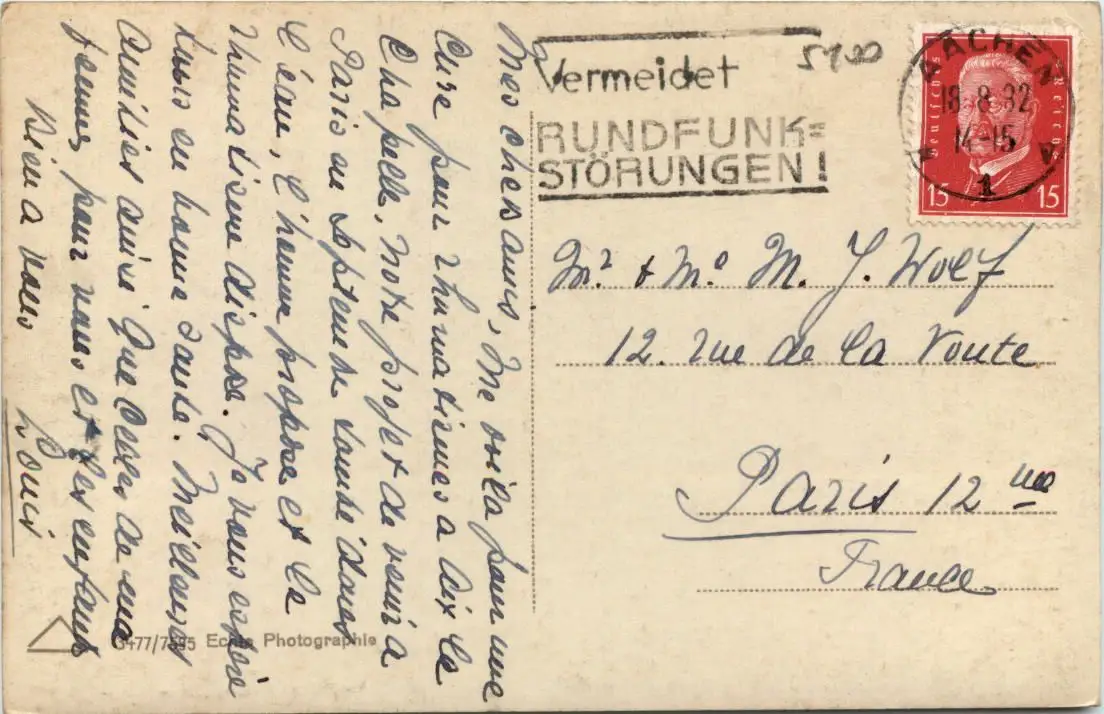 Mes chers amis, Me voila pour une
Cure pour rhumatismes a Aix la
Chapelle. Notre projet de venir a
Paris au Septembre tombe dans
l'éau, l'homme propose et la
rhumatisme dispose. Je vous espère
tous en bonne santé. Meilleures
Amitiés ainsi que celles de ma
femme, pour vous et les enfants
Bien a vous
Louis
Vermeidet
RUNDFUNK=
STÖRUNGEN!
5400
AACHEN
18.8.32
14-15
1
Deutsches Reich
15 15
Mr & Me M. J. Wolf
12. rue de la Voute
Paris 12 me
France
3477/7595 Echte Photographie